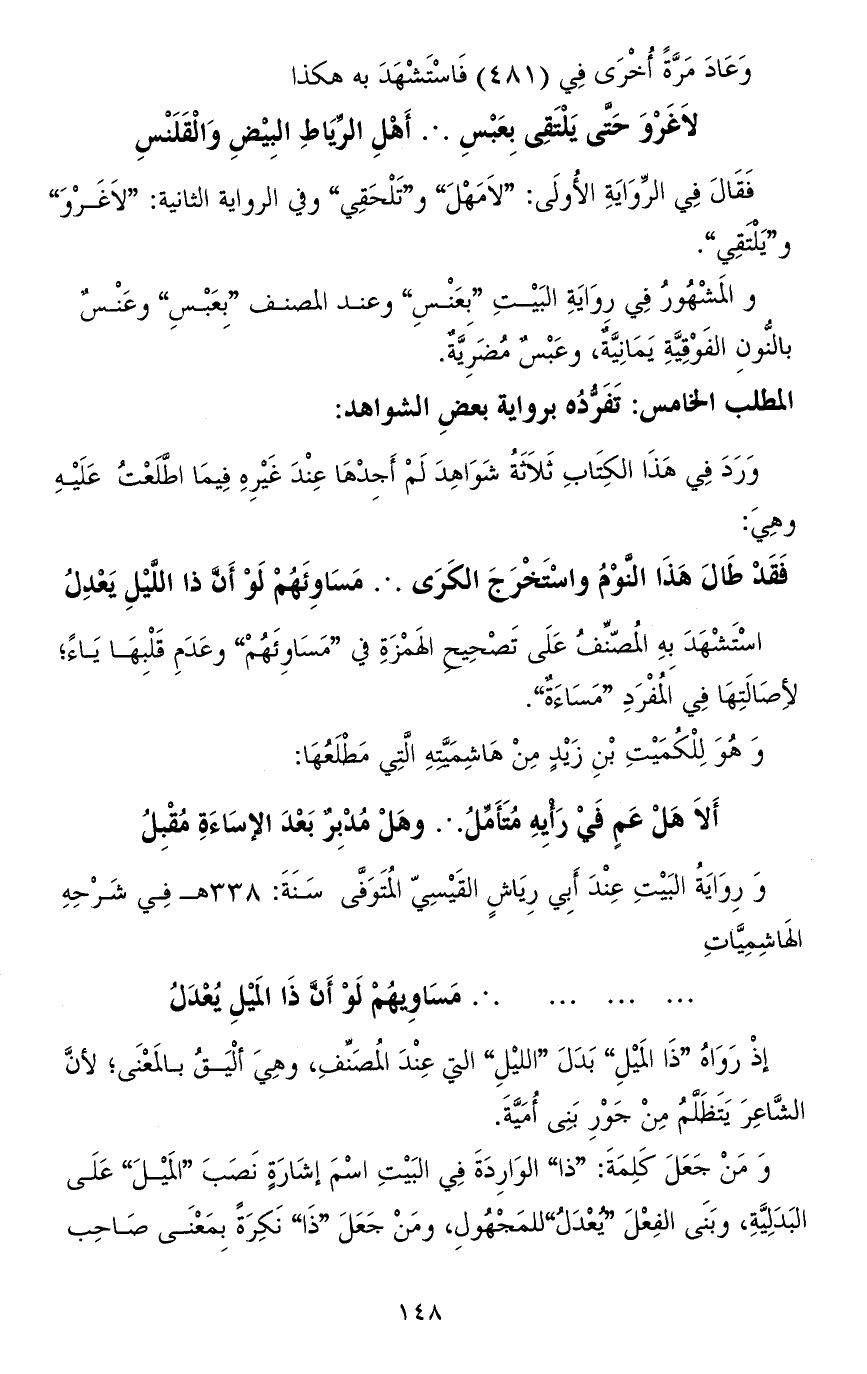 وَعَادَ مَرَّةً أُخْرَى فِي (٤٨١) فَاسْتَشْهَدَ به هكذا
لاَغَرْوَ حَتَّى يَلْتَقِى بِعَبْسِ .٠. أَهْلِ الرِّيَاطِ البِيْضِ وَالْقَلَنْسِ
فَقَالَ فِي الرِّوَايَةِ الأُولَى: ”لاَمَهْلَ“ و”تَلْحَقِي“ وفي الرواية الثانية: ”لاَغَـرْوَ“
و”يَلْتَقِي“.
و المَشْهُورُ فِي رِوَايَةِ البَيْـتِ ”بِعَنْـسِ“ وعنـد المصنـف ”بِعَبْـسِ“ وعَنْـسٌ
بالنُّونِ الفَوْقِيَّةِ يَمَانِيَّةٌ، وعَبْسٌ مُضَرِيَّةٌ.
المطلب الخامس: تَفَرُّدُه برواية بعضِ الشواهد:
وَرَدَ فِي هَذَا الكِتَابِ ثَلاَثَةُ شَوَاهِدَ لَمْ أَجِدْهَا عِنْدَ غَيْرِهِ فِيمَا اطَّلَعْتُ عَلَيْـهِ
وهِيَ:
فَقَدْ طَالَ هَذَا النَّوْمُ واسْتَخْرَجَ الكَرَى .٠. مَسَاوِئَهُمْ لَوْ أَنَّ ذا اللَّيْلِ يَعْدِلُ
اسْتَشْهَدَ بِهِ المُصَنِّفُ عَلَى تَصْحِيحِ الهَمْزَةِ في ”مَسَاوِئَهُمْ“ وعَدَمِ قَلْبِهَـا يَـاءً؛
لأِصَالَتِهَا فِي المُفْرَدِ ”مَسَاءَةٌ“.
وَ هُوَ لِلْكُمَيْتِ بْنِ زَيْدٍ مِنْ هَاشِمِيَّتِهِ الَّتِي مَطْلَعُهَا:
أَلاَ هَلْ عَمٍ فَيْ رَأْيِهِ مُتَأَمِّلُ.٠. وهَلْ مُدْبِرٌ بَعْدَ الإسَاءَةِ مُقْبِلُ
وَ رِوَايَةُ البَيْتِ عِنْدَ أبي رِيَاشٍ القَيْسِيِّ المُتَوَفَّى سَـنَةَ: ٣٣٨هـ فِـي شَـرْحِهِ
الهَاشِمِيَّاتِ
... ... ... ... .٠. مَسَاوِيهُمْ لَوْ أَنَّ ذَا المَيْلِ يُعْدَلُ
إذْ رَوَاهُ ”ذَا المَيْلِ“ بَدَلَ ”الليْلِ“ التي عِنْدَ المُصَنِّفِ، وهِيَ أَلْيَـقُ بـالمَعْنَى؛ لأنَّ
الشَّاعِرَ يَتَظَلَّمُ مِنْ جَوْرِ بَنِى أُمَيَّةَ.
وَ مَنْ جَعَلَ كَلِمَةَ: ”ذا“ الوَارِدَةَ فِي البَيْتِ اسْمَ إشَارَةٍ نَصَبَ ”المَيْـلَ“ عَلَـى
البَدَلِيَّةِ، وبَنَى الفِعْلَ ”يُعْدَلُ“للمَجْهُولِ، ومَنْ جَعَلَ ”ذَا“ نَكِرَةً بِمَعْنَـى صَـاحِب
١٤٨